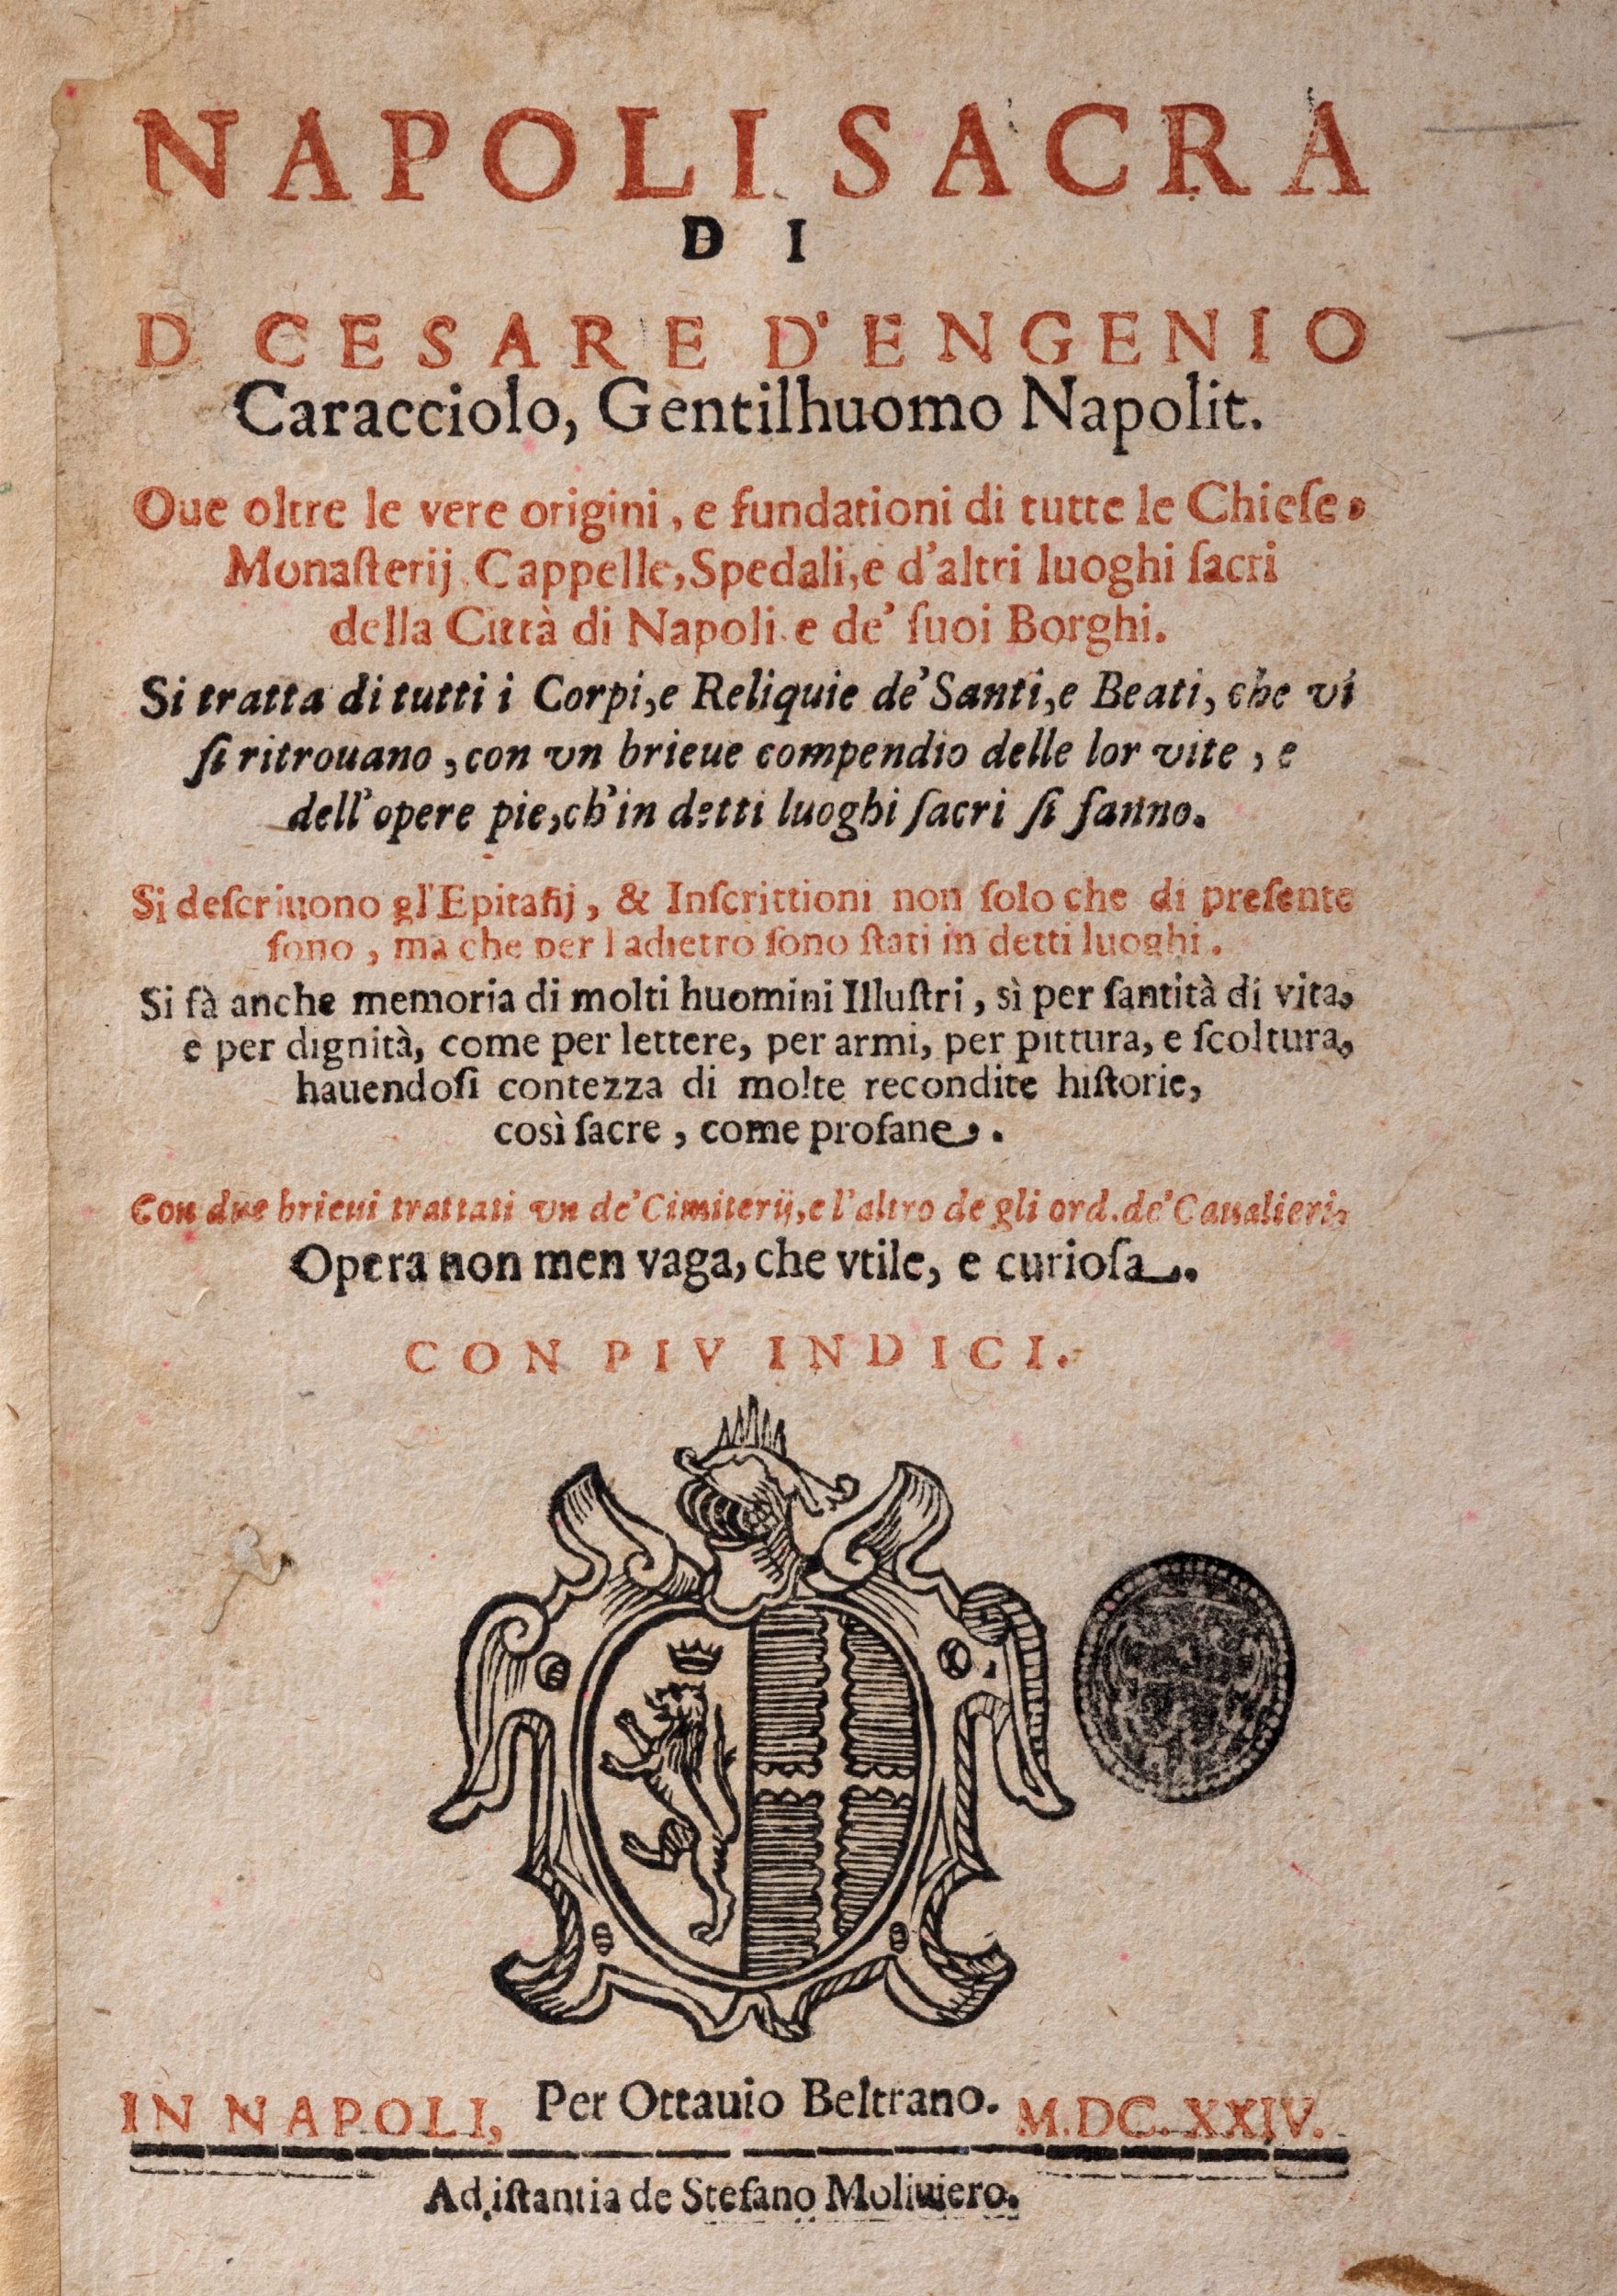 NAPOLI SACRA
DI
D. CESARE D'ENGENIO
Caracciolo, Gentilhuomo Napolit.
Oue oltre le vere origini, e fundationi di tutte le Chieſe,
Monaſterij, Cappelle, Spedali, e d'altri luoghi ſacri
della Città di Napoli, e de' ſuoi Borghi.
Si tratta di tutti i Corpi, e Reliquie de' Santi, e Beati, che vi
ſi ritrouano, con vn brieue compendio delle lor vite, e
dell'opere pie, ch'in detti luoghi ſacri ſi fanno.
Si deſcriuono gl'Epitafij, & Inſcrittioni non ſolo che di preſente
ſono, ma che per l adietro ſono ſtati in detti luoghi.
Si fà anche memoria di molti huomini Illuſtri, sì per ſantità di vita,
e per dignità, come per lettere, per armi, per pittura, e ſcoltura,
hauendoſi contezza di molte recondite hiſtorie,
così ſacre, come profane.
Con due brieui trattati vn de' Cimiterij, e l'altro de gli ord. de' Caualieri.
Opera non men vaga, che vtile, e curioſa.
CON PIV INDICI.
IN NAPOLI, Per Ottauio Beltrano. M.DC.XXIV.
Ad iſtantia de Stefano Moliuiero.